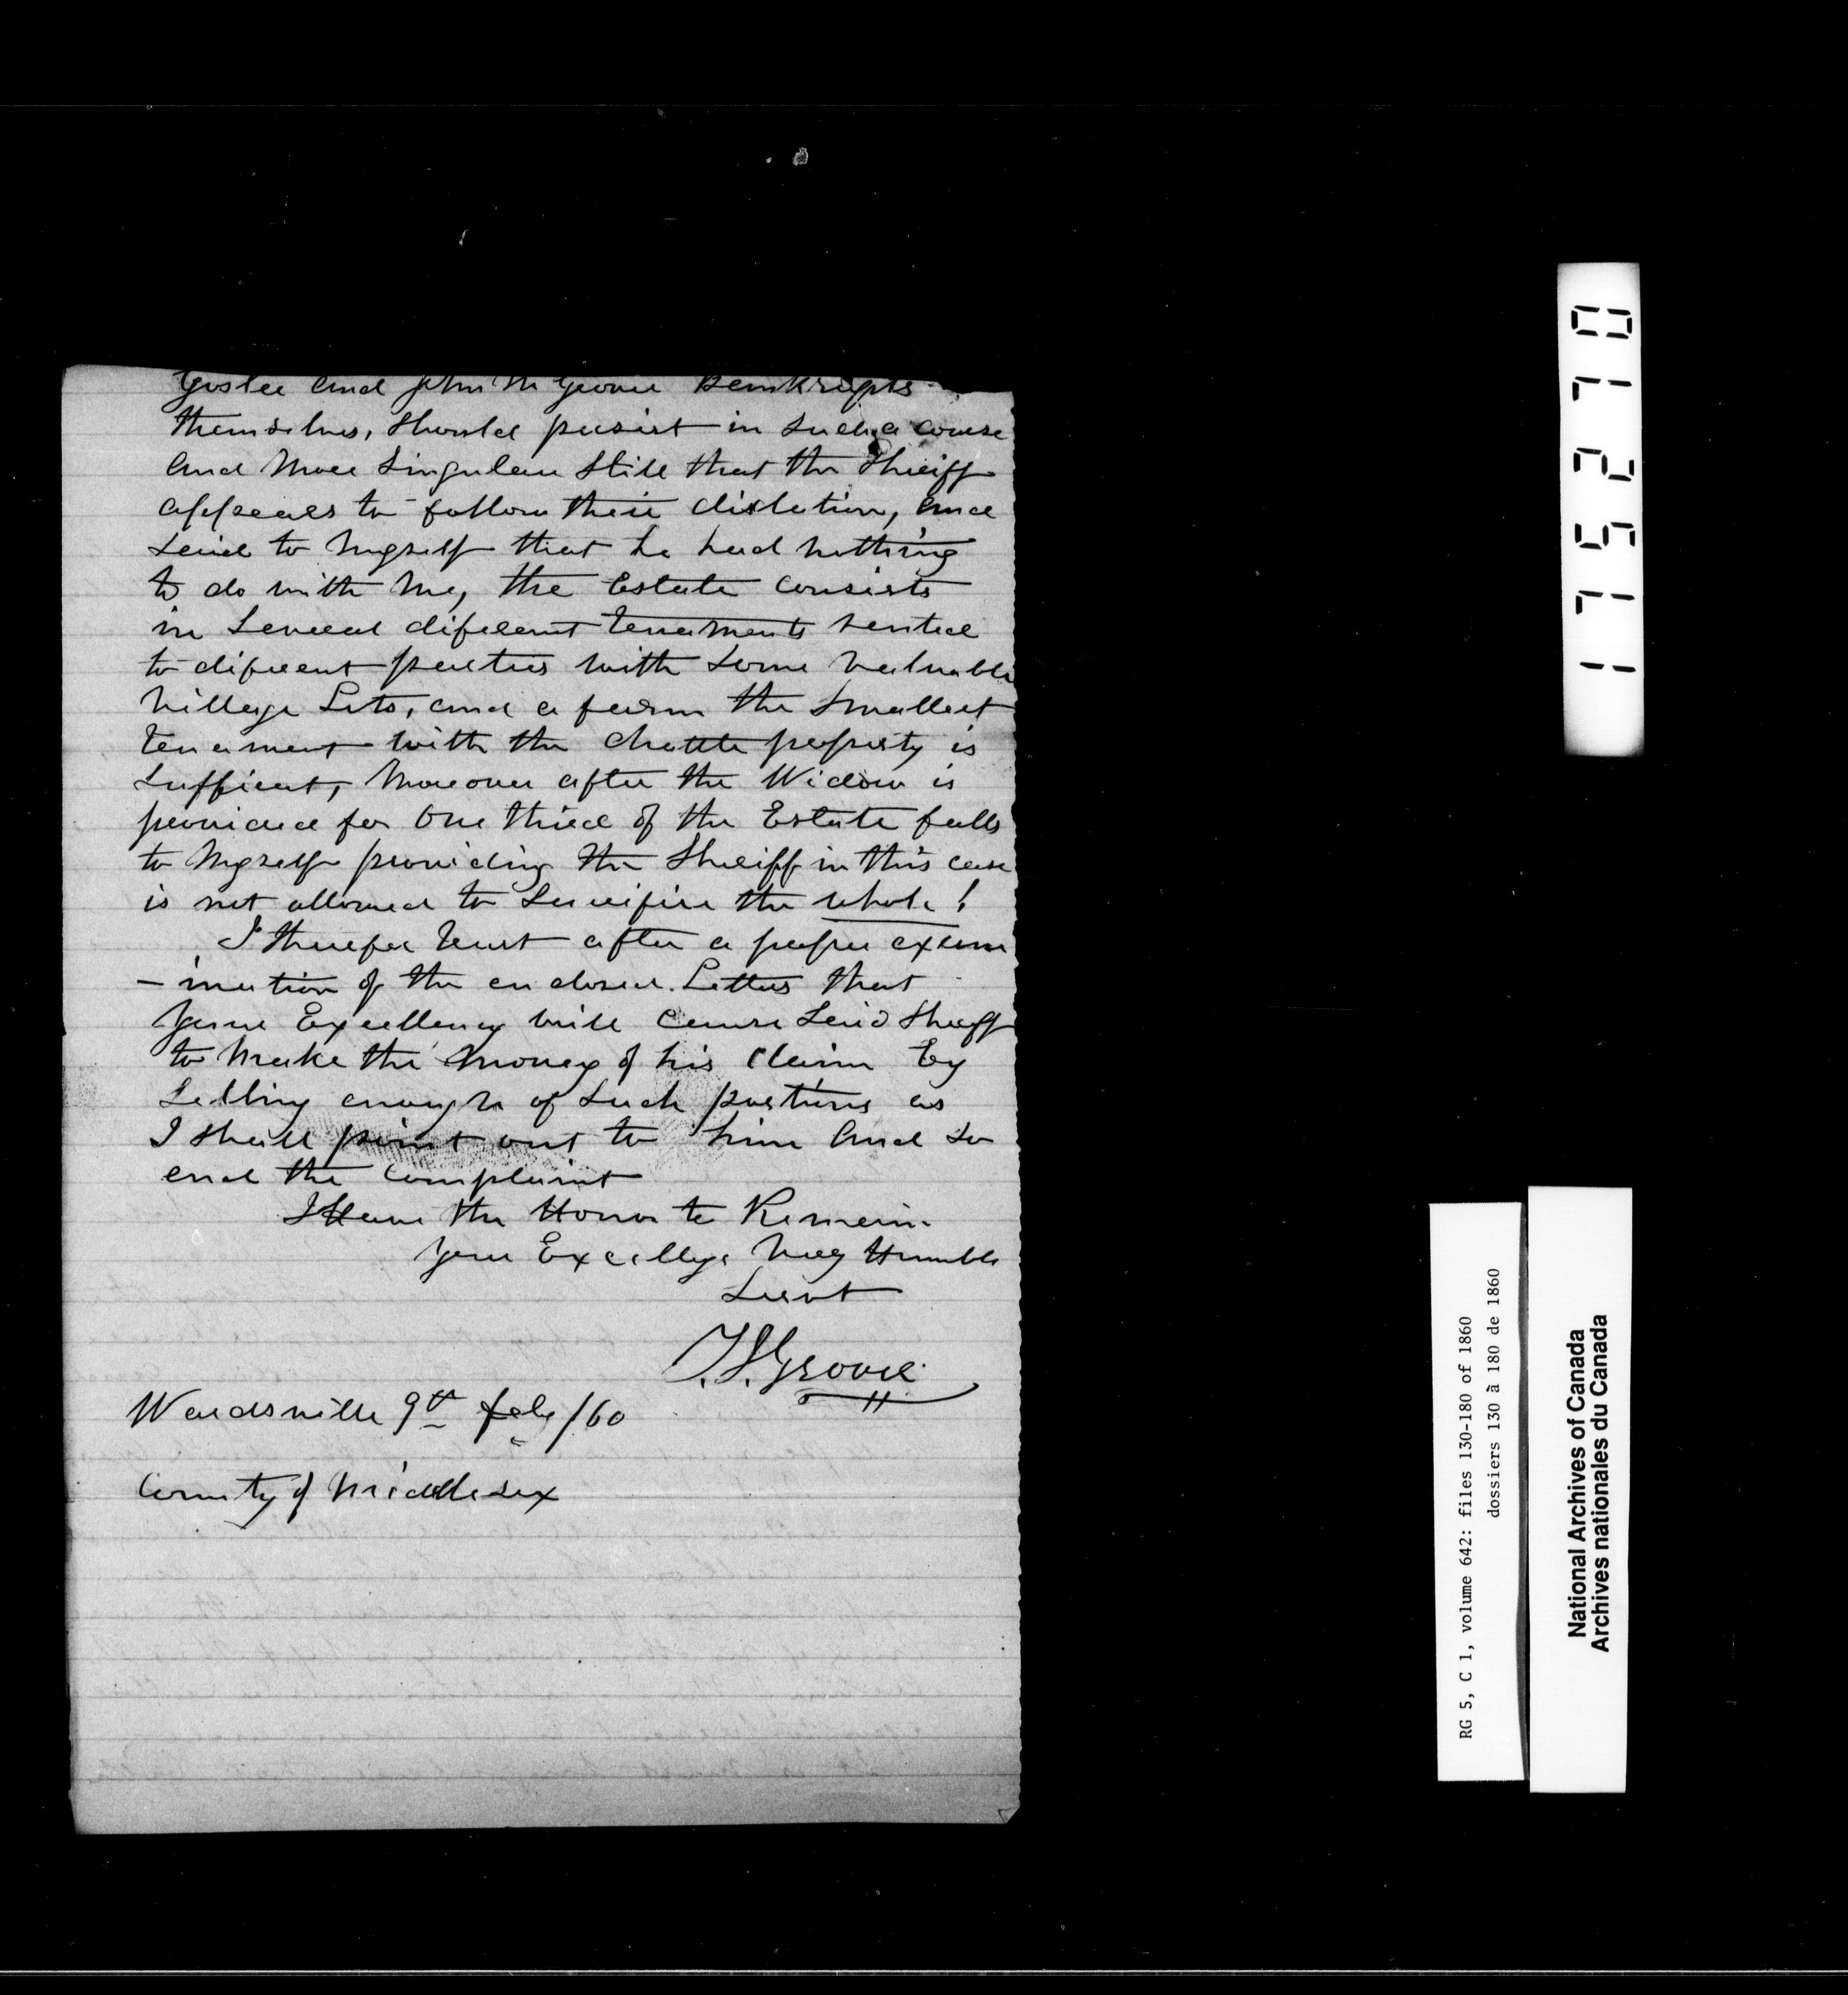 and John M Grover Bankrupts
themselves, should persist in such a course
and more singular still that the Sheriff
appears to follow their dictation, and
said to myself that he had nothing
to do with me, the Estate consists
in several diferent tenements rented
to diferent parties with some valuable
village Lots, and a farm the smallest
tenement with the chattle property is
sufficent, moreover after the Widow is
provided for One third of the Estate falls
to myself providing the Sheriff in this case
is not allowed to sacrifice the whole!
I therefor trust after a proper exam
-ination of the enclosed Letters that
your Excellency will cause said Sheriff
to make the money of his claim by
selling enough of such portions as
I shall point out to him and so
end the complaint
I Have the Honor to Remain
your Excellys. Humble
Servt
Wardsville 9th Feby /60
County of Middlesex
1175270
RG 5, C 1, volume 642: files 130-180 of 1860
dossiers 130 à 180 de 1860
National Archives of Canada
Archives nationales du Canada